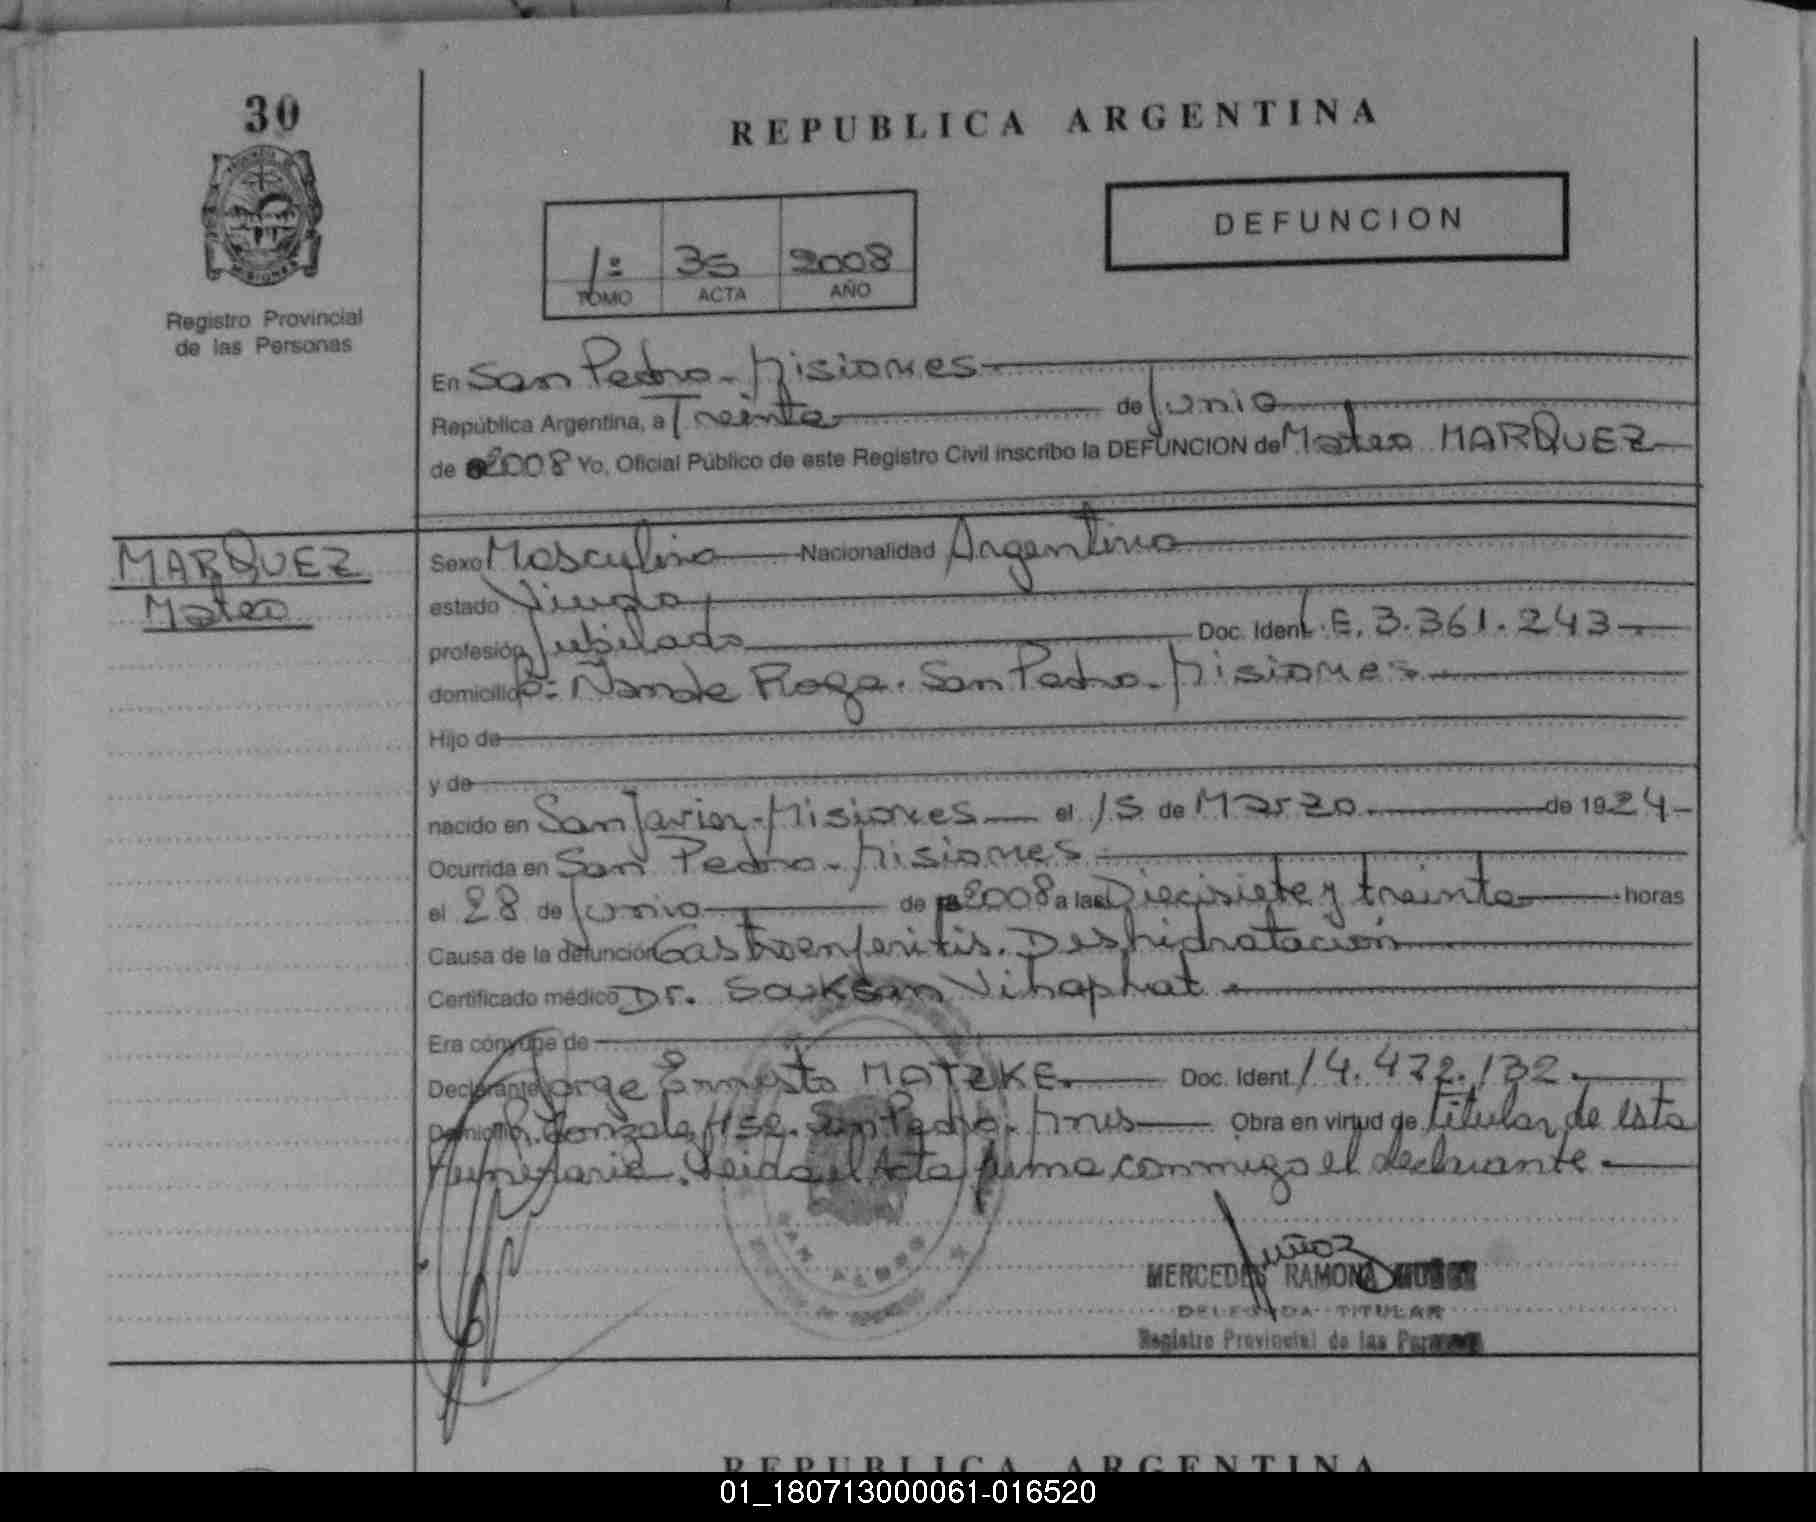 30
REPUBLICA ARGENTINA
PROVINCIA DE
MISIONES
DEFUNCION
1º 35 2008
TOMO ACTA AÑO
Registro Provincial
de las Personas
En San Pedro - Misiones
República Argentina, a Treinta de Junio
de 2008 Yo, Oficial Público de este Registro Civil inscribo la DEFUNCION de Mateo MARQUEZ
MARQUEZ
Mateo
Sexo Masculino Nacionalidad Argentino
estado Viudo
profesión Jubilado Doc. Ident. L.E. 3.361.243
domicilio Bº: Ñande Roga. San Pedro - Misiones
Hijo de
y de
nacido en San Javier - Misiones el 15 de Marzo de 1924
Ocurrida en San Pedro - Misiones
el 28 de Junio de 2008 a las Diecisiete y treinta horas
Causa de la defunción Gastroenteritis. Deshidratación
Certificado médico Dr. Saksan Vihaphat
Era cónyuge de
Declarante Jorge Ernesto MATZKE. Doc. Ident. 14.472.132.
Domicilio San Pedro. Mnes Obra en virtud de titular de esta
Funeraria. Leida el Acta firma conmigo el declarante.
Muñoz
MERCEDES RAMONA MUÑOZ
DELEGADA TITULAR
Registro Provincial de las Personas
REPUBLICA ARGENTINA
01_180713000061-016520